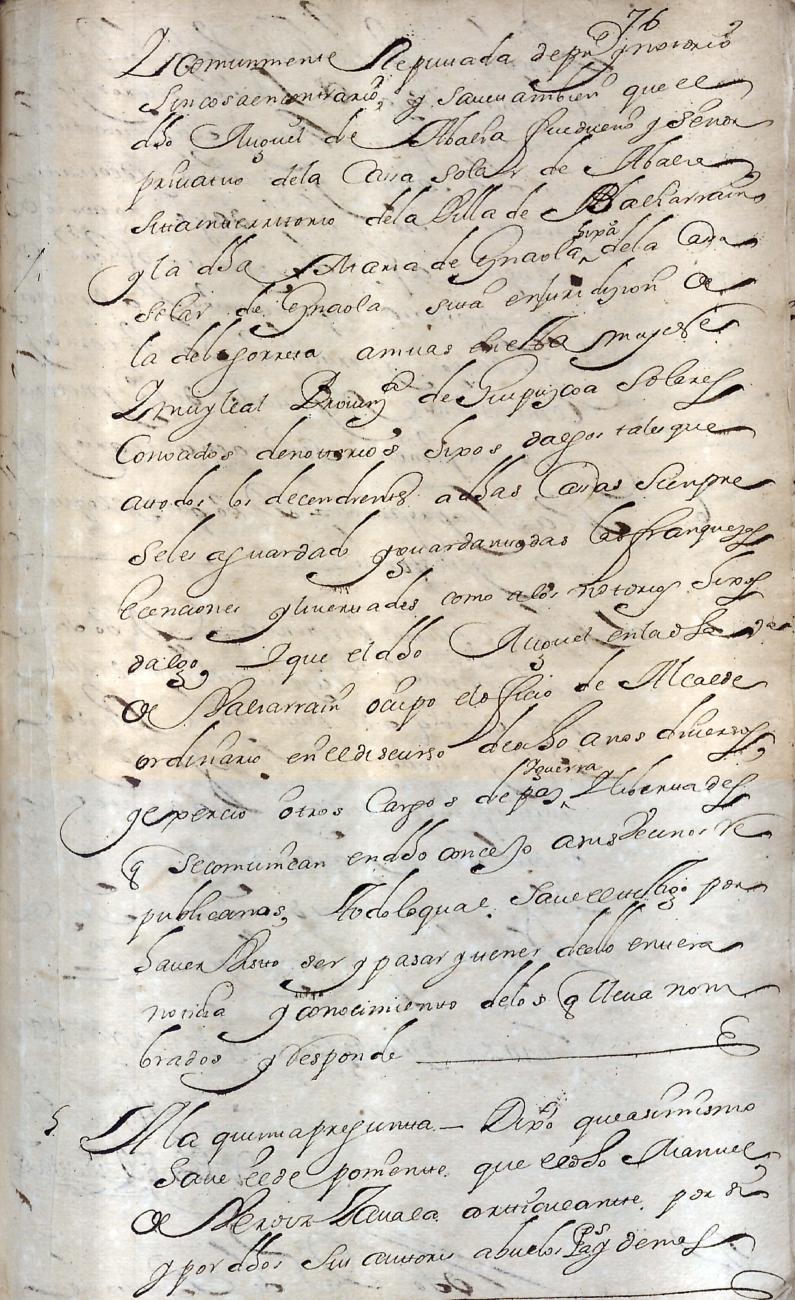 76
Y comunmente Reputada de pu<sup>co</sup> y notorio
sin cosa en contrario, y save tambien que el
dho Miguel de Abaeta fue dueño y señor
privativo dela Cassa solar de Abaeta
sita in territorio dela Villa de Baliarrain
y la dha Maria de Gnaola hixa dela Cassa
solar de Gnaola sita en juridizion de
la de Lisorreta amvas en esta muy noble
Y muy leal Provinçia de Guipuzcoa solares
Conocidos de notorios hixos dalgo tales que
a todos los decendientes a dhas Casas siempre
se les a guardado y guardan todas las franquezas
Ecenciones y livertades como a los notorios hixos
dalgo, Y que el dho Miguel en la dha
de Baliarrain ocupo el oficio de Alcalde
ordinario en el discurso de ocho años diversos,
y exercio otros Cargos de paz y guerra Y livertades
q se comunican en dho concejo a sus vecinos Re
publicanos, Todo lo qual save el testigo por
haver visto ser y pasar y tener de ello entera
noticia y conocimiento delos q lleva nom
brados y Responde
5 A la quinta pregunta — Dixo que asimismo
Save el deponente que el dho Manuel
de articulante por si
y por dhos sus autores abuelos Ps y demas